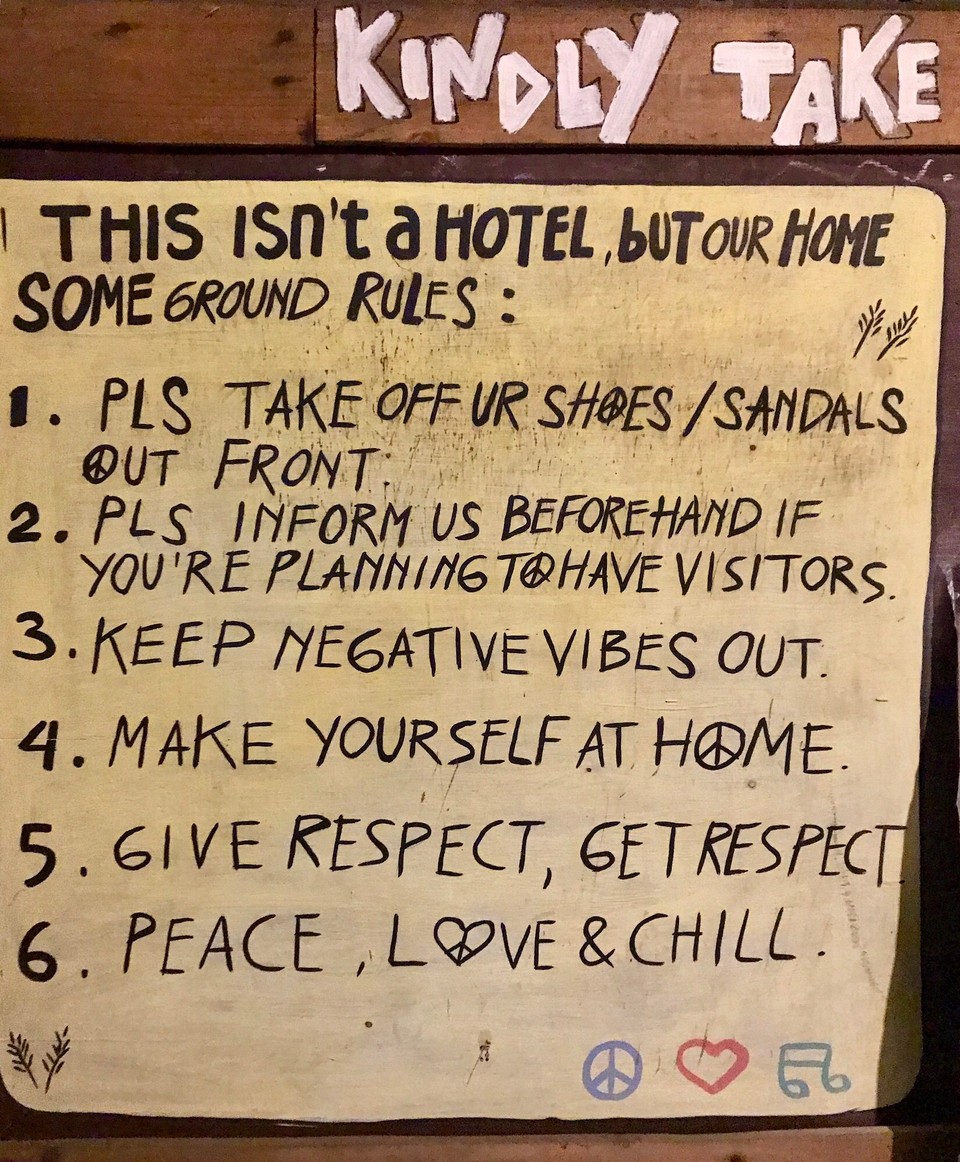 KINDLY TAKE
THIS ISn't a HOTEL, bUT OUR HOME
SOME GROUND RULES :
1. PLS TAKE OFF UR SHOES / SANDALS
OUT FRONT.
2. PLS INFORM US BEFOREHAND IF
YOU'RE PLANNING TO HAVE VISITORS.
3. KEEP NEGATIVE VIBES OUT.
4. MAKE YOURSELF AT HOME.
5. GIVE RESPECT, GET RESPECT.
6. PEACE, LOVE & CHILL.